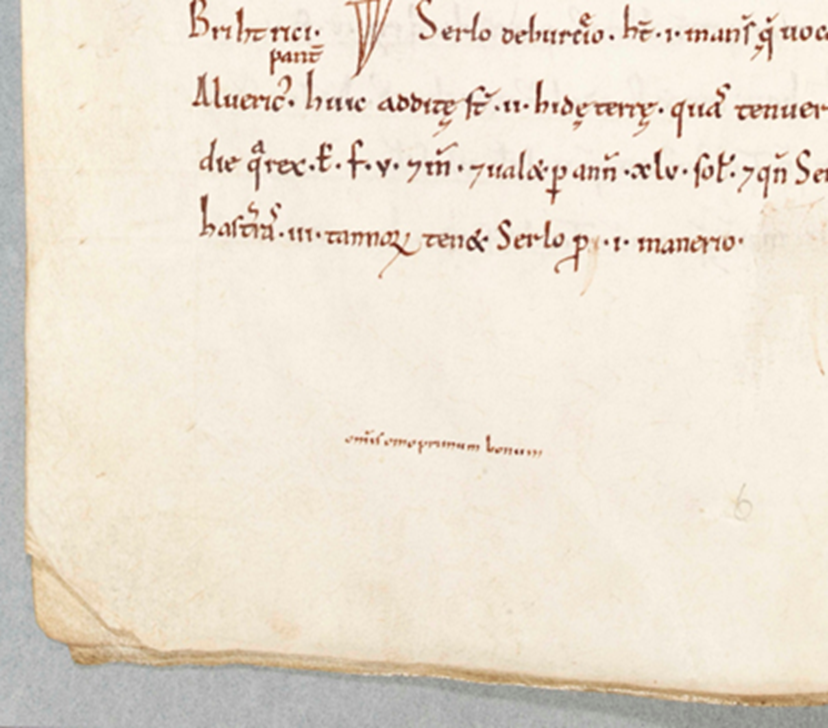 Brihtrici· Serlo deburcio. ht̄·i·mans̄ q̄ uoca
pariē
Alueric᷒· huic additę st̄·ii·hidę terrę· quas tenuer
die qͣ rex·E·f·v·⁊m̄·⁊ualet p ann̄·xlv·sol·⁊qn̄ Ser
has trͣs·iii·tannoꝝ tenet Serlo p·i·manerio·
omis omo primum bonum
6